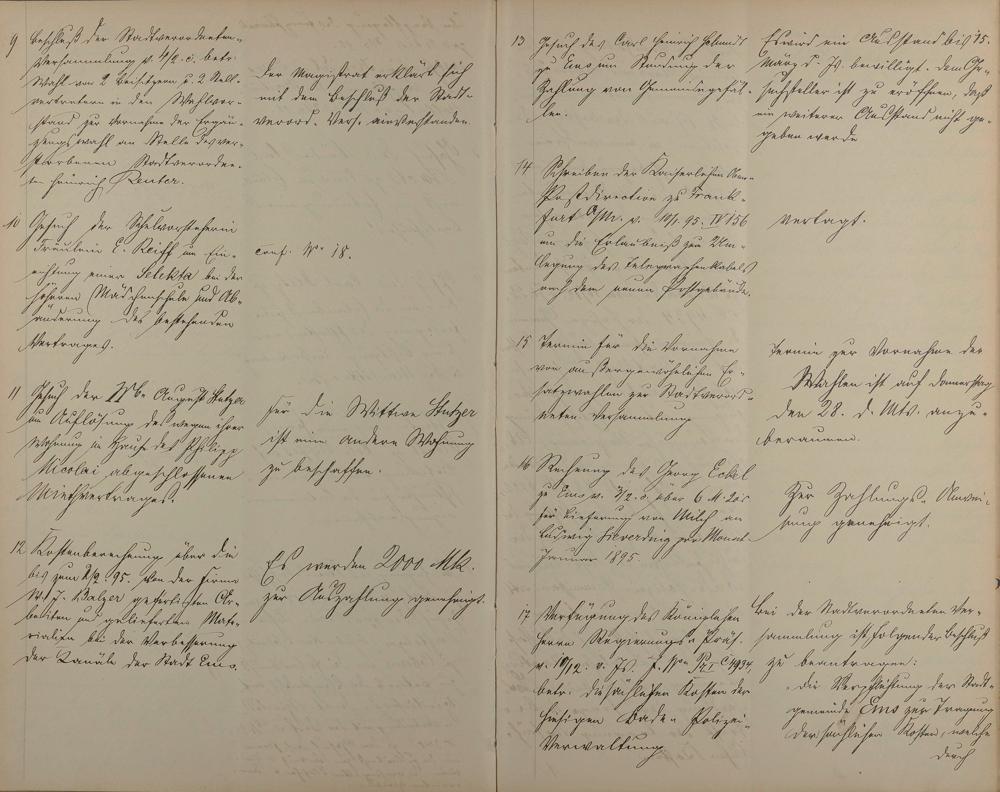 9 Beschluß der Stadtverordneten-
Versammlung v. 4/2. c. betr.
Wahl von 2 Beisitzern u. 2 Stell-
vertretern in den Wahlvor-
stand zur Vornahme der Ergän-
zungswahl an Stelle des ver-
storbenen Stadtverordne-
ten Heinrich Reuter.
Der Magistrat erklärt sich
mit dem Beschluß der Stadt-
verord. Vers. einverstanden.
10 Gesuch der Schulvorsteherin
Fräulein E. Reiff um Ein-
richtung einer Selekta bei der
höheren Mädchenschule und Ab-
änderung des bestehenden
Vertrages.
conf. No 18.
11 Gesuch der Wwe August Hutzer
um Auflösung des wegen ihrer
Wohnung im Hause des Philipp
Nicolai abgeschlossenen
Miethvertrages.
Für die Wittwe Hutzer
ist eine andere Wohnung
zu beschaffen.
12 Kostenberechnung über die
bis zum 2/2. 95. von der Firma
Balzer gefertigten Ar-
beiten und gelieferten Mate-
rialien bei der Verbesserung
der Kanäle der Stadt Ems.
Es werden 2000 Mk.
zur Auszahlung genehmigt.
13 Gesuch des Carl Heinrich
zu Ems um Stundung der
Zahlung von Gemeindegefäl-
len.
Es wird ein Ausstand bis 15.
März d. Js. bewilligt. Dem Ge-
suchsteller ist zu eröffnen, daß
ein weiterer Ausstand nicht ge-
geben werde
14 Schreiben der Kaiserlichen Ober-
Postdirection zu Frank-
furt a/M. v. 10/1. 95. IV 156
um die Erlaubniß zur Um-
legung des Telegraphenkabels
nach dem neuen Postgebäude.
Vertagt.
15 Termin für die Vornahme
von außergewöhnlichen Er-
satzwahlen zur Stadtverord-
neten Versammlung
Termin zur Vornahme der
Wahlen ist auf Donnerstag
den 28. d. Mts. anzu-
beraumen.
16 Rechnung des Georg Eckel
zu Ems v. 3/2. c. über 6 M.
für Lieferung von Milch an
Ludwig pro Monat
Januar 1895.
Zur Zahlungs-Anwei-
sung genehmigt.
17 Verfügung des Königlichen
Herrn Regierungs-Präs.
v. 10/12. v. Js. Pr. I C 4934,
betr. die sächlichen Kosten der
hiesigen Bade-Polizei-
Verwaltung
Bei der Stadtverordneten Ver-
sammlung ist folgender Beschluß
zu beantragen:
Die Verpflichtung der Stadt-
gemeinde Ems zur Tragung
der sächlichen Kosten, welche
durch